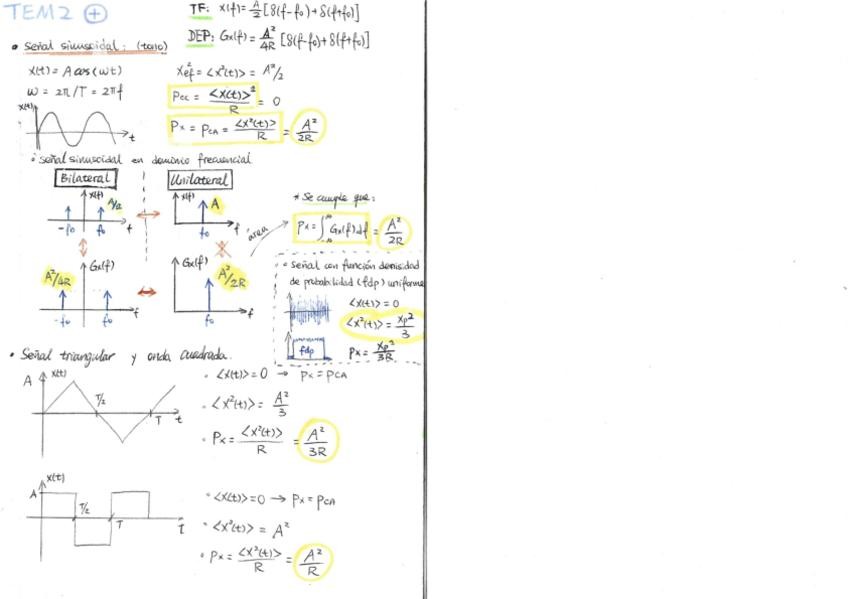 TEM2 +
TF: X(f) = A/2 [δ(f-f₀) + δ(f+f₀)]
DEP: Gx(f) = A²/4R [δ(f-f₀) + δ(f+f₀)]
• Señal sinusoidal: (tono)
x(t) = A cos(ωt)
ω = 2π/T = 2πf
Xef² = <x²(t)> = A²/2
Pcc = <x(t)>²/R = 0
Px = PCA = <x²(t)>/R = A²/2R
x(t)
t
Señal sinusoidal en dominio frecuencial
Bilateral
Unilateral
x(f)
A/2
-f₀
f₀
f
x(f)
A
f₀
f
área
* Se cumple que:
Px = ∫ Gx(f)df = A²/2R
Gx(f)
A²/4R
-f₀
f₀
f
Gx(f)
A²/2R
f₀
f
• Señal con función densidad
de probabilidad (fdp) uniforme
<x(t)> = 0
<x²(t)> = xp²/3
Px = xp²/3R
fdp
• Señal triangular y onda cuadrada.
x(t)
A
T/2
T
t
• <x(t)> = 0 → Px = PCA
• <x²(t)> = A²/3
• Px = <x²(t)>/R = A²/3R
x(t)
A
T/2
T
t
• <x(t)> = 0 → Px = PCA
• <x²(t)> = A²
• Px = <x²(t)>/R = A²/R